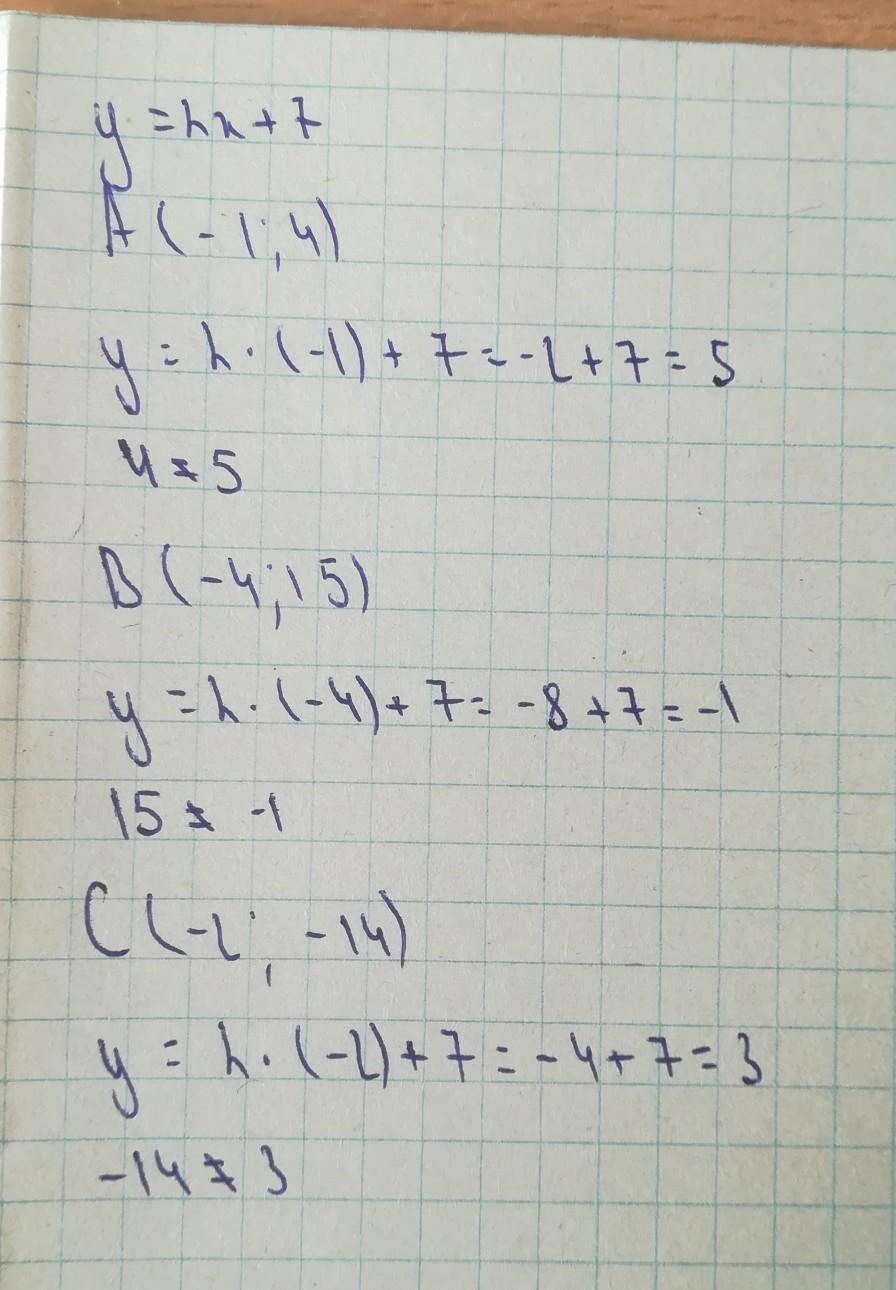 y = 2x + 7
A (-1; 4)
y = 2 · (-1) + 7 = -2 + 7 = 5
4 ≠ 5
B (-4; 15)
y = 2 · (-4) + 7 = -8 + 7 = -1
15 ≠ -1
C (-2; -14)
y = 2 · (-2) + 7 = -4 + 7 = 3
-14 ≠ 3